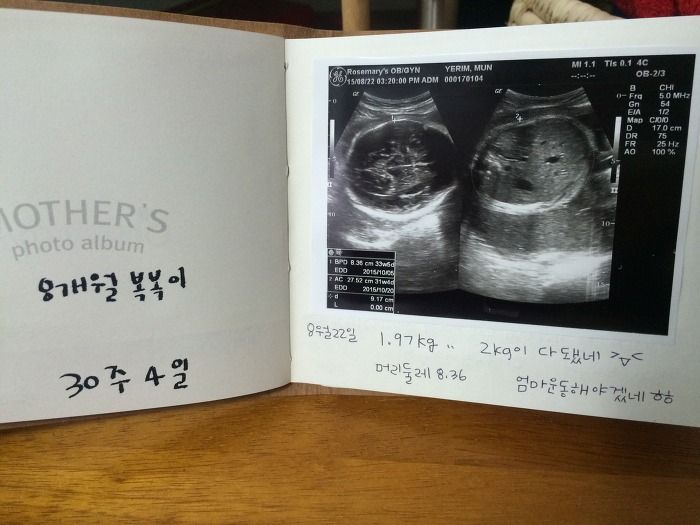 MOTHER'S
photo album
8개월 복복이
30주 4일
GE
Rosemary's OB/GYN
YERIM, MUN
MI 1.1 TIs 0.1 4C
15/08/22 03:20:00 PM ADM 000170104
--:--:--
OB-2/3
B CHI
Frq 5.0 MHz
Gn 54
E/A 1/2
Map C/0/0
D 17.0 cm
DR 75
FR 25 Hz
AO 100 %
1 BPD 8.36 cm 33w5d
EDD 2015/10/05
2 AC 27.52 cm 31w4d
EDD 2015/10/20
d 9.17 cm
L 0.00 cm
8월22일 1.97kg .. 2kg이 다 됐네 >△<
머리둘레 8.36 엄마운동해야겠네 힝